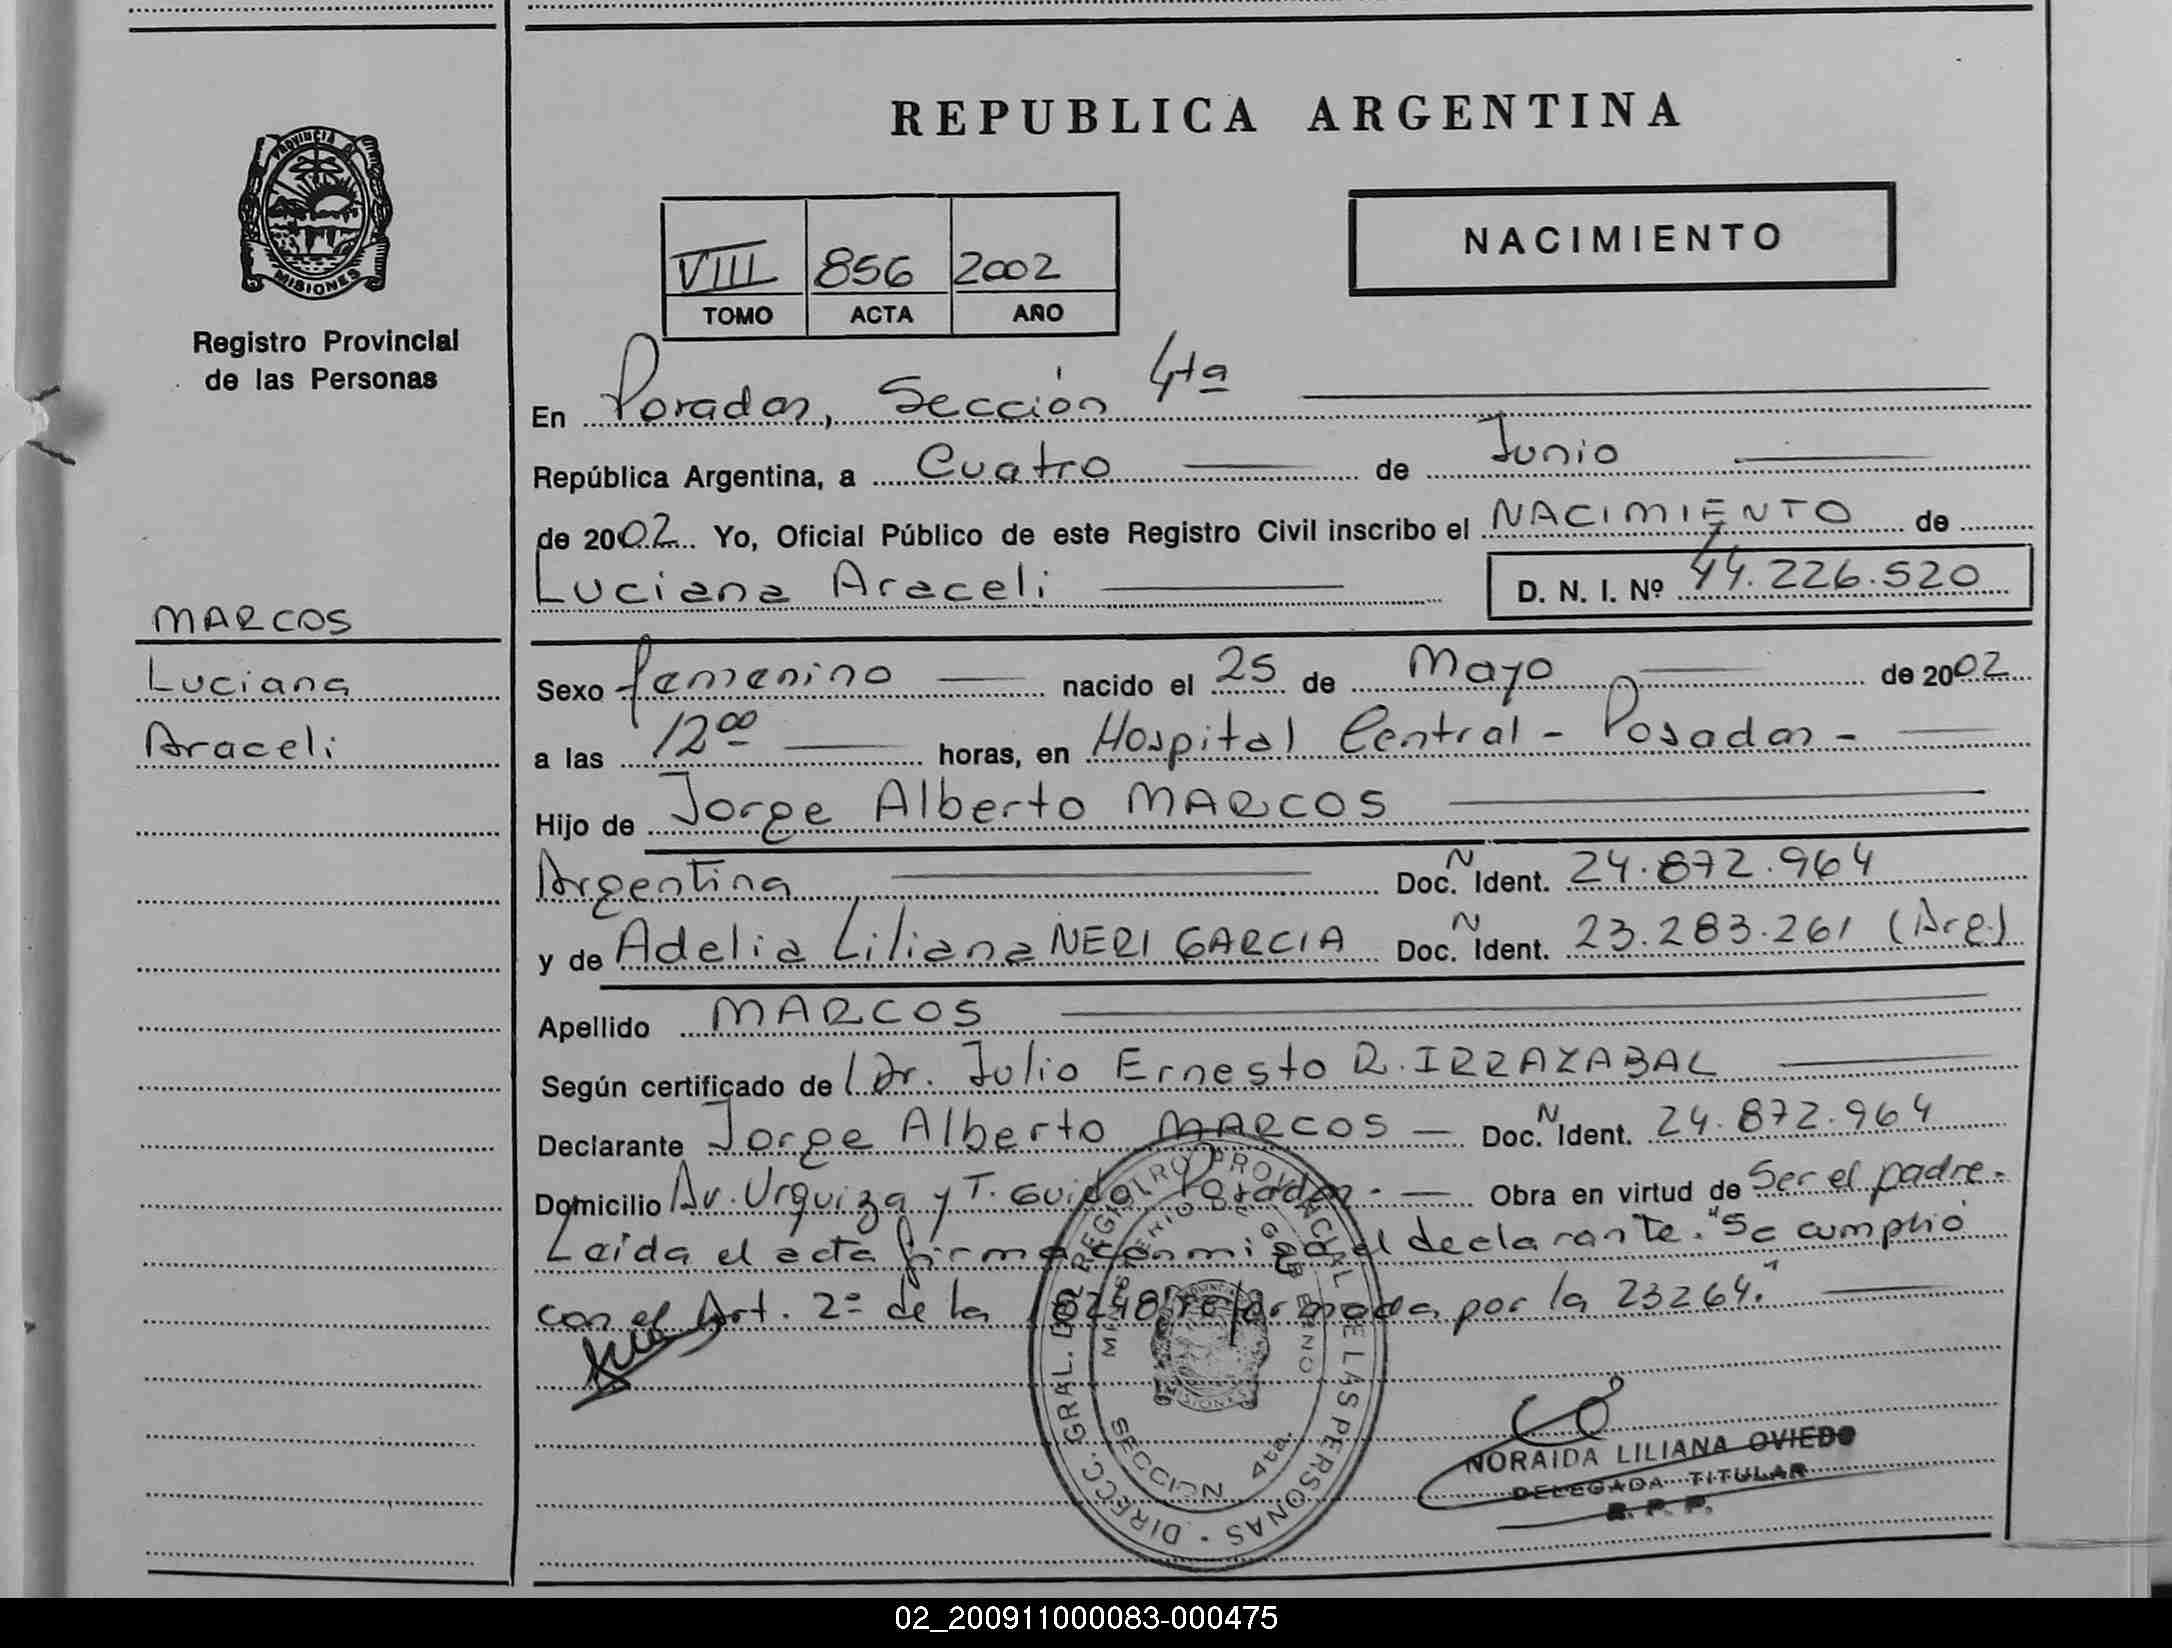 PROVINCIA DE
MISIONES
Registro Provincial
de las Personas
MARCOS
Luciana
Araceli
REPUBLICA ARGENTINA
NACIMIENTO
VIII 856 2002
TOMO ACTA AÑO
En Posadas, Sección 4ta
República Argentina, a Cuatro de Junio
de 2002 Yo, Oficial Público de este Registro Civil inscribo el NACIMIENTO de
Luciana Araceli D. N. I. Nº 44.226.520
Sexo femenino nacido el 25 de Mayo de 2002
a las 12 00 horas, en Hospital Central - Posadas -
Hijo de Jorge Alberto MARCOS
Argentina Doc. N Ident. 24.872.964
y de Adelia Liliana NERI GARCIA Doc. N Ident. 23.283.261 (Arg)
Apellido MARCOS
Según certificado de Dr. Julio Ernesto R. IRRAZABAL
Declarante Jorge Alberto MARCOS - Doc. N Ident. 24.872.964
Domicilio Av. Urquiza y T. Guido Posadas - Obra en virtud de Ser el padre.
Leída el acta firma conmigo el declarante. "Se cumplió
con el Art. 2º de la 18248 reformada por la 23264."
DIRECC. GRAL. DEL REGISTRO PROVINCIAL DE LAS PERSONAS
MINISTERIO DE GOBIERNO
SECCION 4ta.
NORAIDA LILIANA OVIEDO
DELEGADA TITULAR
R. P. P.
02_200911000083-000475